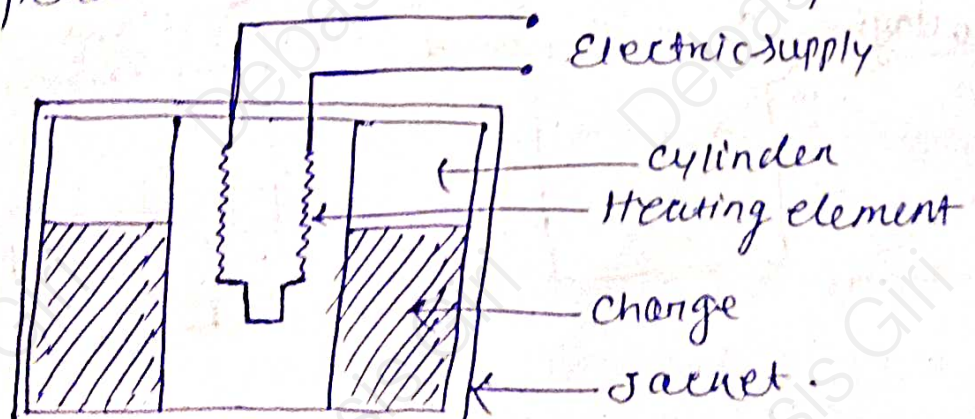 Electric supply
cylinder
Heating element
charge
Jacket.
Debasis Giri